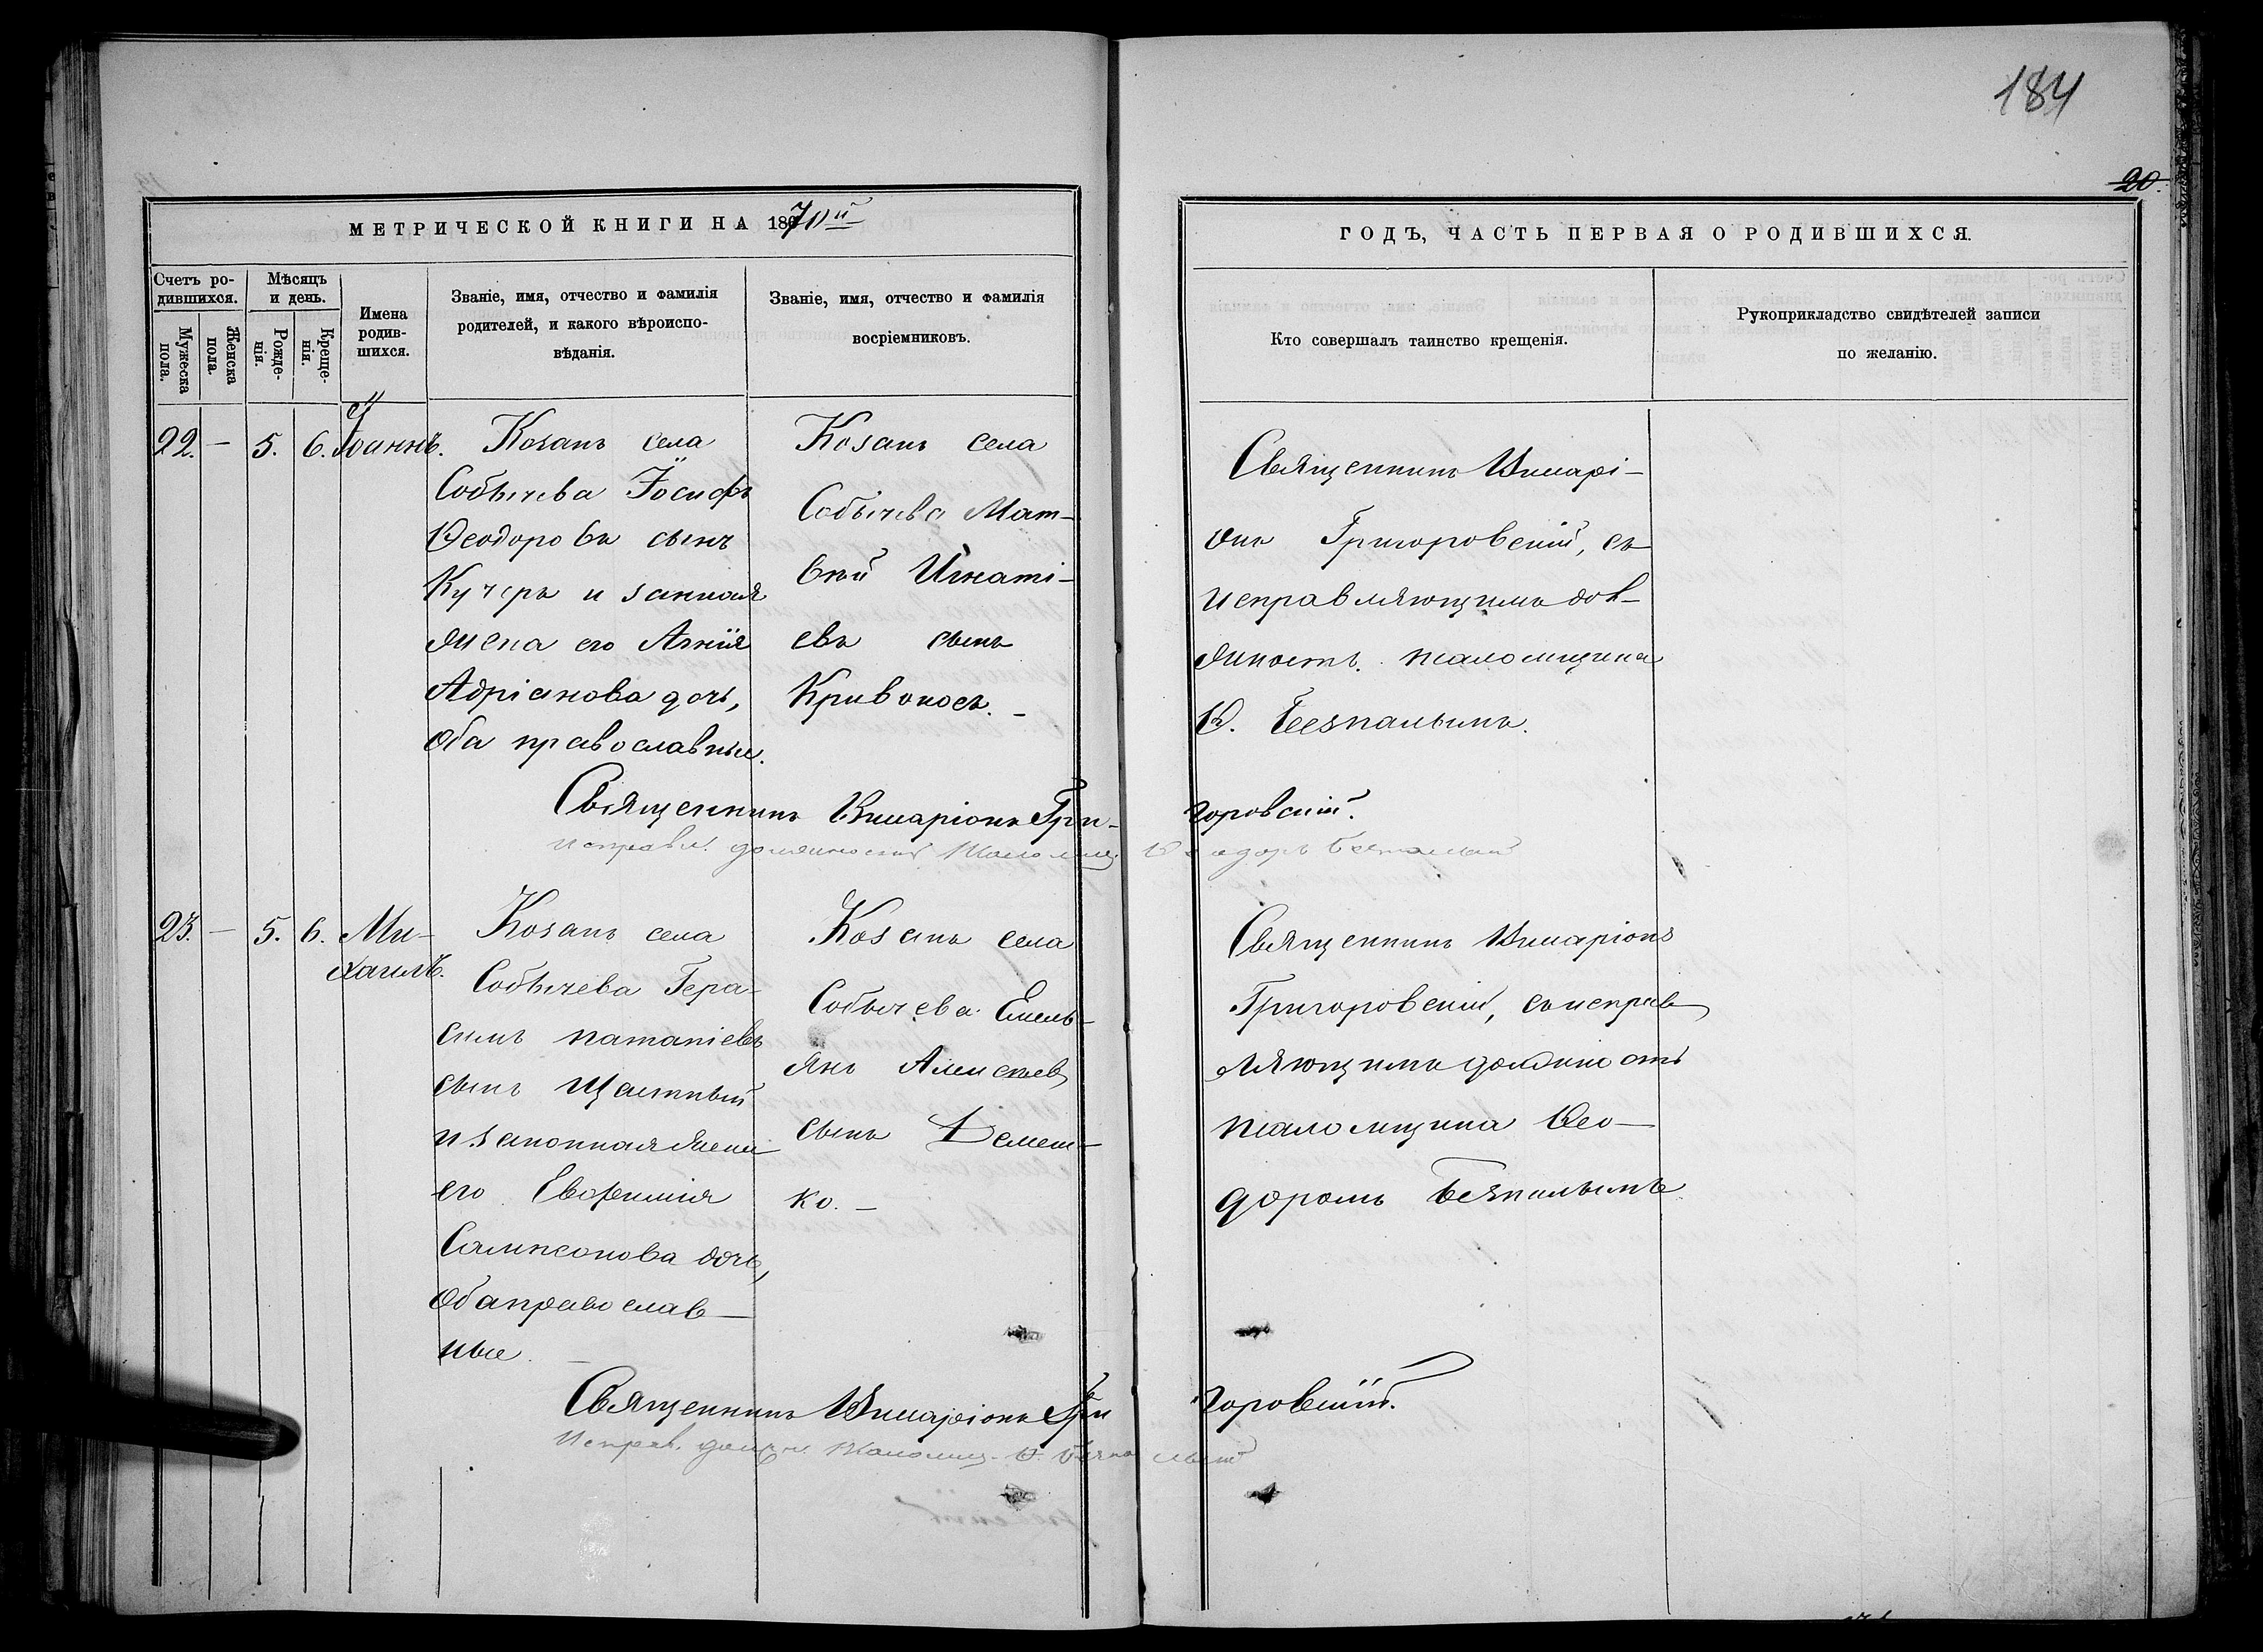 184
20.
МЕТРИЧЕСКОЙ КНИГИ НА 1870й
ГОДЪ, ЧАСТЬ ПЕРВАЯ О РОДИВШИХСЯ.
Счетъ ро-
дившихся.
Мужеска
пола.
Женска
пола.
Мѣсяцъ
и день.
Рожде-
нія.
Креще-
нія.
Имена
родив-
шихся.
Званіе, имя, отчество и фамилія
родителей, и какого вѣроиспо-
вѣданія.
Званіе, имя, отчество и фамилія
воспріемниковъ.
Кто совершалъ таинство крещенія.
Рукоприкладство свидѣтелей записи
по желанію.
22. – 5. 6. Іоаннъ.
Козакъ села
Собычева Іосифъ
Ѳеодоровъ сынъ
Кучеръ и законная
жена его Агнія
Адріанова дочь,
Оба православные.
Козакъ села
Собычева Мат-
вѣй Игнаті-
евъ сынъ
Кривоносъ. –
Священникъ Иларі-
онъ Григоровскій, съ
исправляющимъ дол-
жность псаломщика
Ѳ. Безпалымъ.
Священникъ Иларіонъ Гри-
горовскій.
исправл. должность псаломщ. Ѳеодоръ Безпалый
23. – 5. 6. Ми-
хаилъ.
Козакъ села
Собычева Гера-
симъ
сынъ Щастный
и законная жена
его Евфимія
Сампсонова дочь,
Оба православ-
ные.
Козакъ села
Собычева Емель-
янъ Алексѣевъ
сынъ Демеш-
ко. –
Священникъ Иларіонъ
Григоровскій, съ исправ
ляющимъ должность
псаломщика Ѳео-
доромъ Безпалымъ
Священникъ Иларіонъ Гри
горовскій.
Исправ. должн. псаломщ. Ѳ. Безпалый